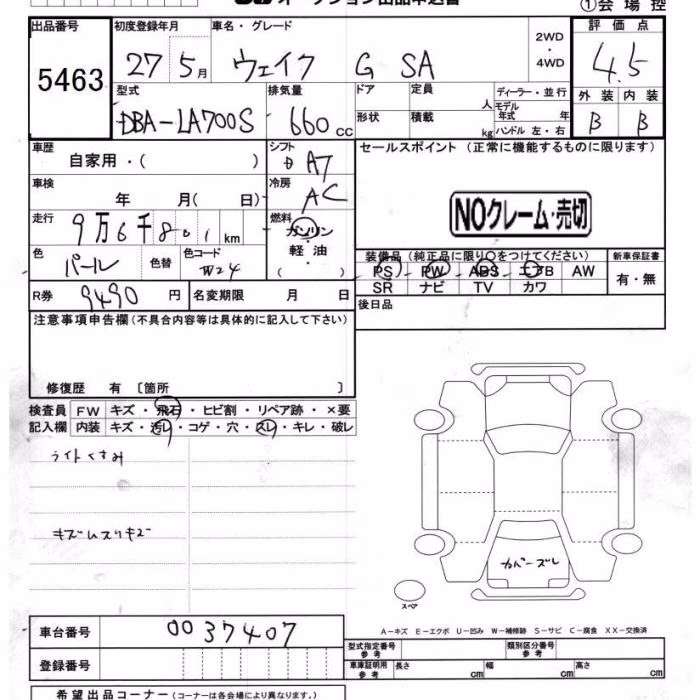 ①会場控
出品番号 初度登録年月 車名・グレード 2WD・4WD 評価点
5463 27 5月 ウェイク G SA 4.5
型式 排気量 ドア 定員 人 ディーラー・並行 外装 内装
DBA-LA700S 660cc 形状 積載 kg モデル年式 年 ハンドル 左・右 B B
車歴 自家用・( ) シフト AT セールスポイント (正常に機能するものに限ります)
車検 年 月( 日) 冷房 AC
NOクレーム・売切
走行 9万6千801km 燃料 ガソリン・軽油( )
色 パール 色替 色コード W24
装備品(純正品に限り○をつけてください) 新車保証書
PS PW ABS エアB AW 有・無
SR ナビ TV カワ
R券 9490円 名変期限 月 日 後日品
注意事項申告欄(不具合内容等は具体的に記入して下さい)
修復歴 有〔箇所 〕
検査員 FW キズ・飛石・ヒビ割・リペア跡・×要
記入欄 内装 キズ・汚れ・コゲ・穴・スレ・キレ・破レ
ライトくすみ
カバーズレ
スペア
車台番号 0037407
A-キズ E-エクボ U-凹み W-補修跡 S-サビ C-腐食 XX-交換済
登録番号
型式指定番号 参考 類別区分番号 参考
車庫証明用 参考 長さ cm 幅 cm 高さ cm
希望出品コーナー(コーナーは各会場により異なります。)